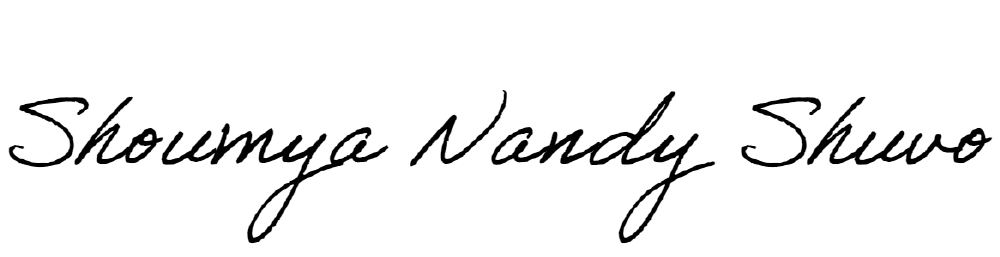 Shoumya Nandy Shuvo